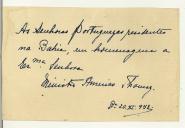 As Senhoras Portuguesas residentes
na Bahia, em homenagem a
Exma. Senhora
Ministro Americo Thomaz.
20.XI.942.